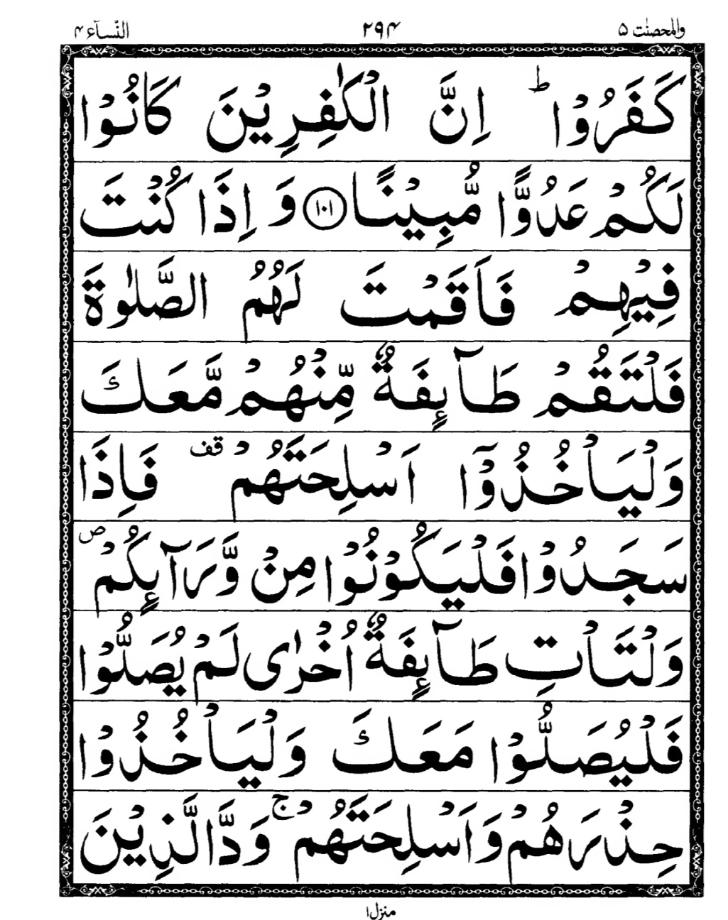 والمحصنٰت ۵ ۲۹۴ النّسآء ۴
كَفَرُوْا ؕ اِنَّ الْكٰفِرِيْنَ كَانُوْا
لَكُمْ عَدُوًّا مُّبِيْنًا ﴿۱۰۱﴾ وَ اِذَا كُنْتَ
فِيْهِمْ فَاَقَمْتَ لَهُمُ الصَّلٰوةَ
فَلْتَقُمْ طَآئِفَةٌ مِّنْهُمْ مَّعَكَ
وَلْيَاْخُذُوْٓا اَسْلِحَتَهُمْ قف فَاِذَا
سَجَدُوْا فَلْيَكُوْنُوْا مِنْ وَّرَآئِكُمْ ص
وَلْتَاْتِ طَآئِفَةٌ اُخْرٰى لَمْ يُصَلُّوْا
فَلْيُصَلُّوْا مَعَكَ وَلْيَاْخُذُوْا
حِذْرَهُمْ وَاَسْلِحَتَهُمْ ج وَدَّ الَّذِيْنَ
منزل۱